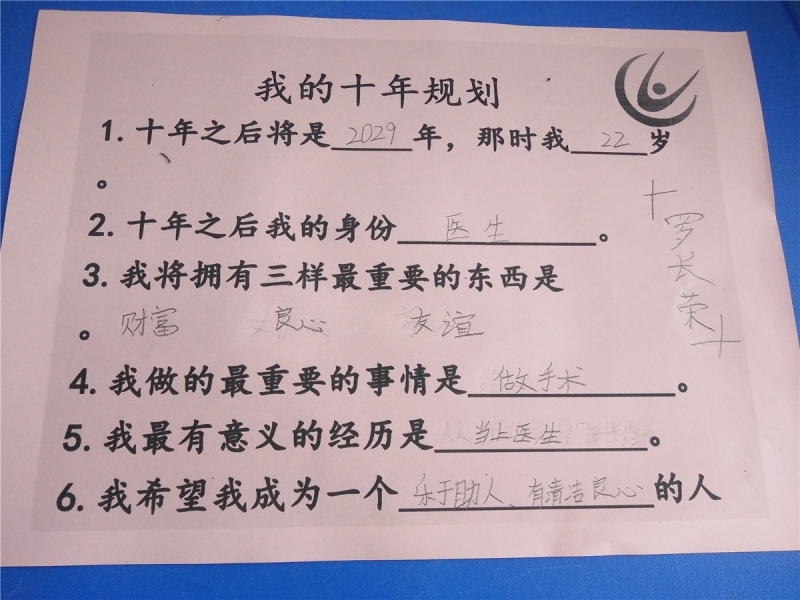 我的十年规划
1. 十年之后将是 2029 年，那时我 22 岁
。
2. 十年之后我的身份 医生 。
3. 我将拥有三样最重要的东西是
。 财富 良心 友谊
4. 我做的最重要的事情是 做手术 。
5. 我最有意义的经历是 当上医生 。
6. 我希望我成为一个 乐于助人、有清洁良心 的人
罗长荣